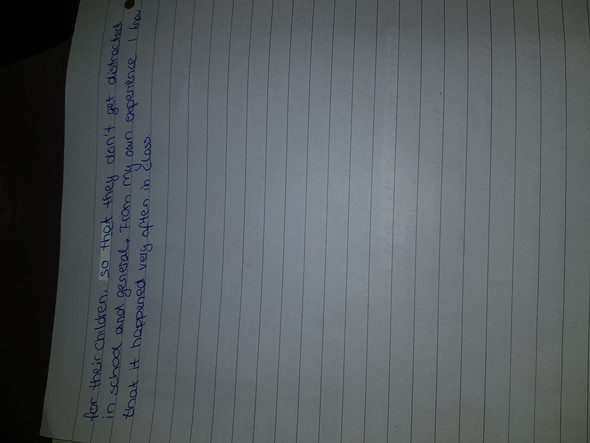 for their children, so that they don't get distracted
in school and general. From my own experience I know
that it happened very often in class.